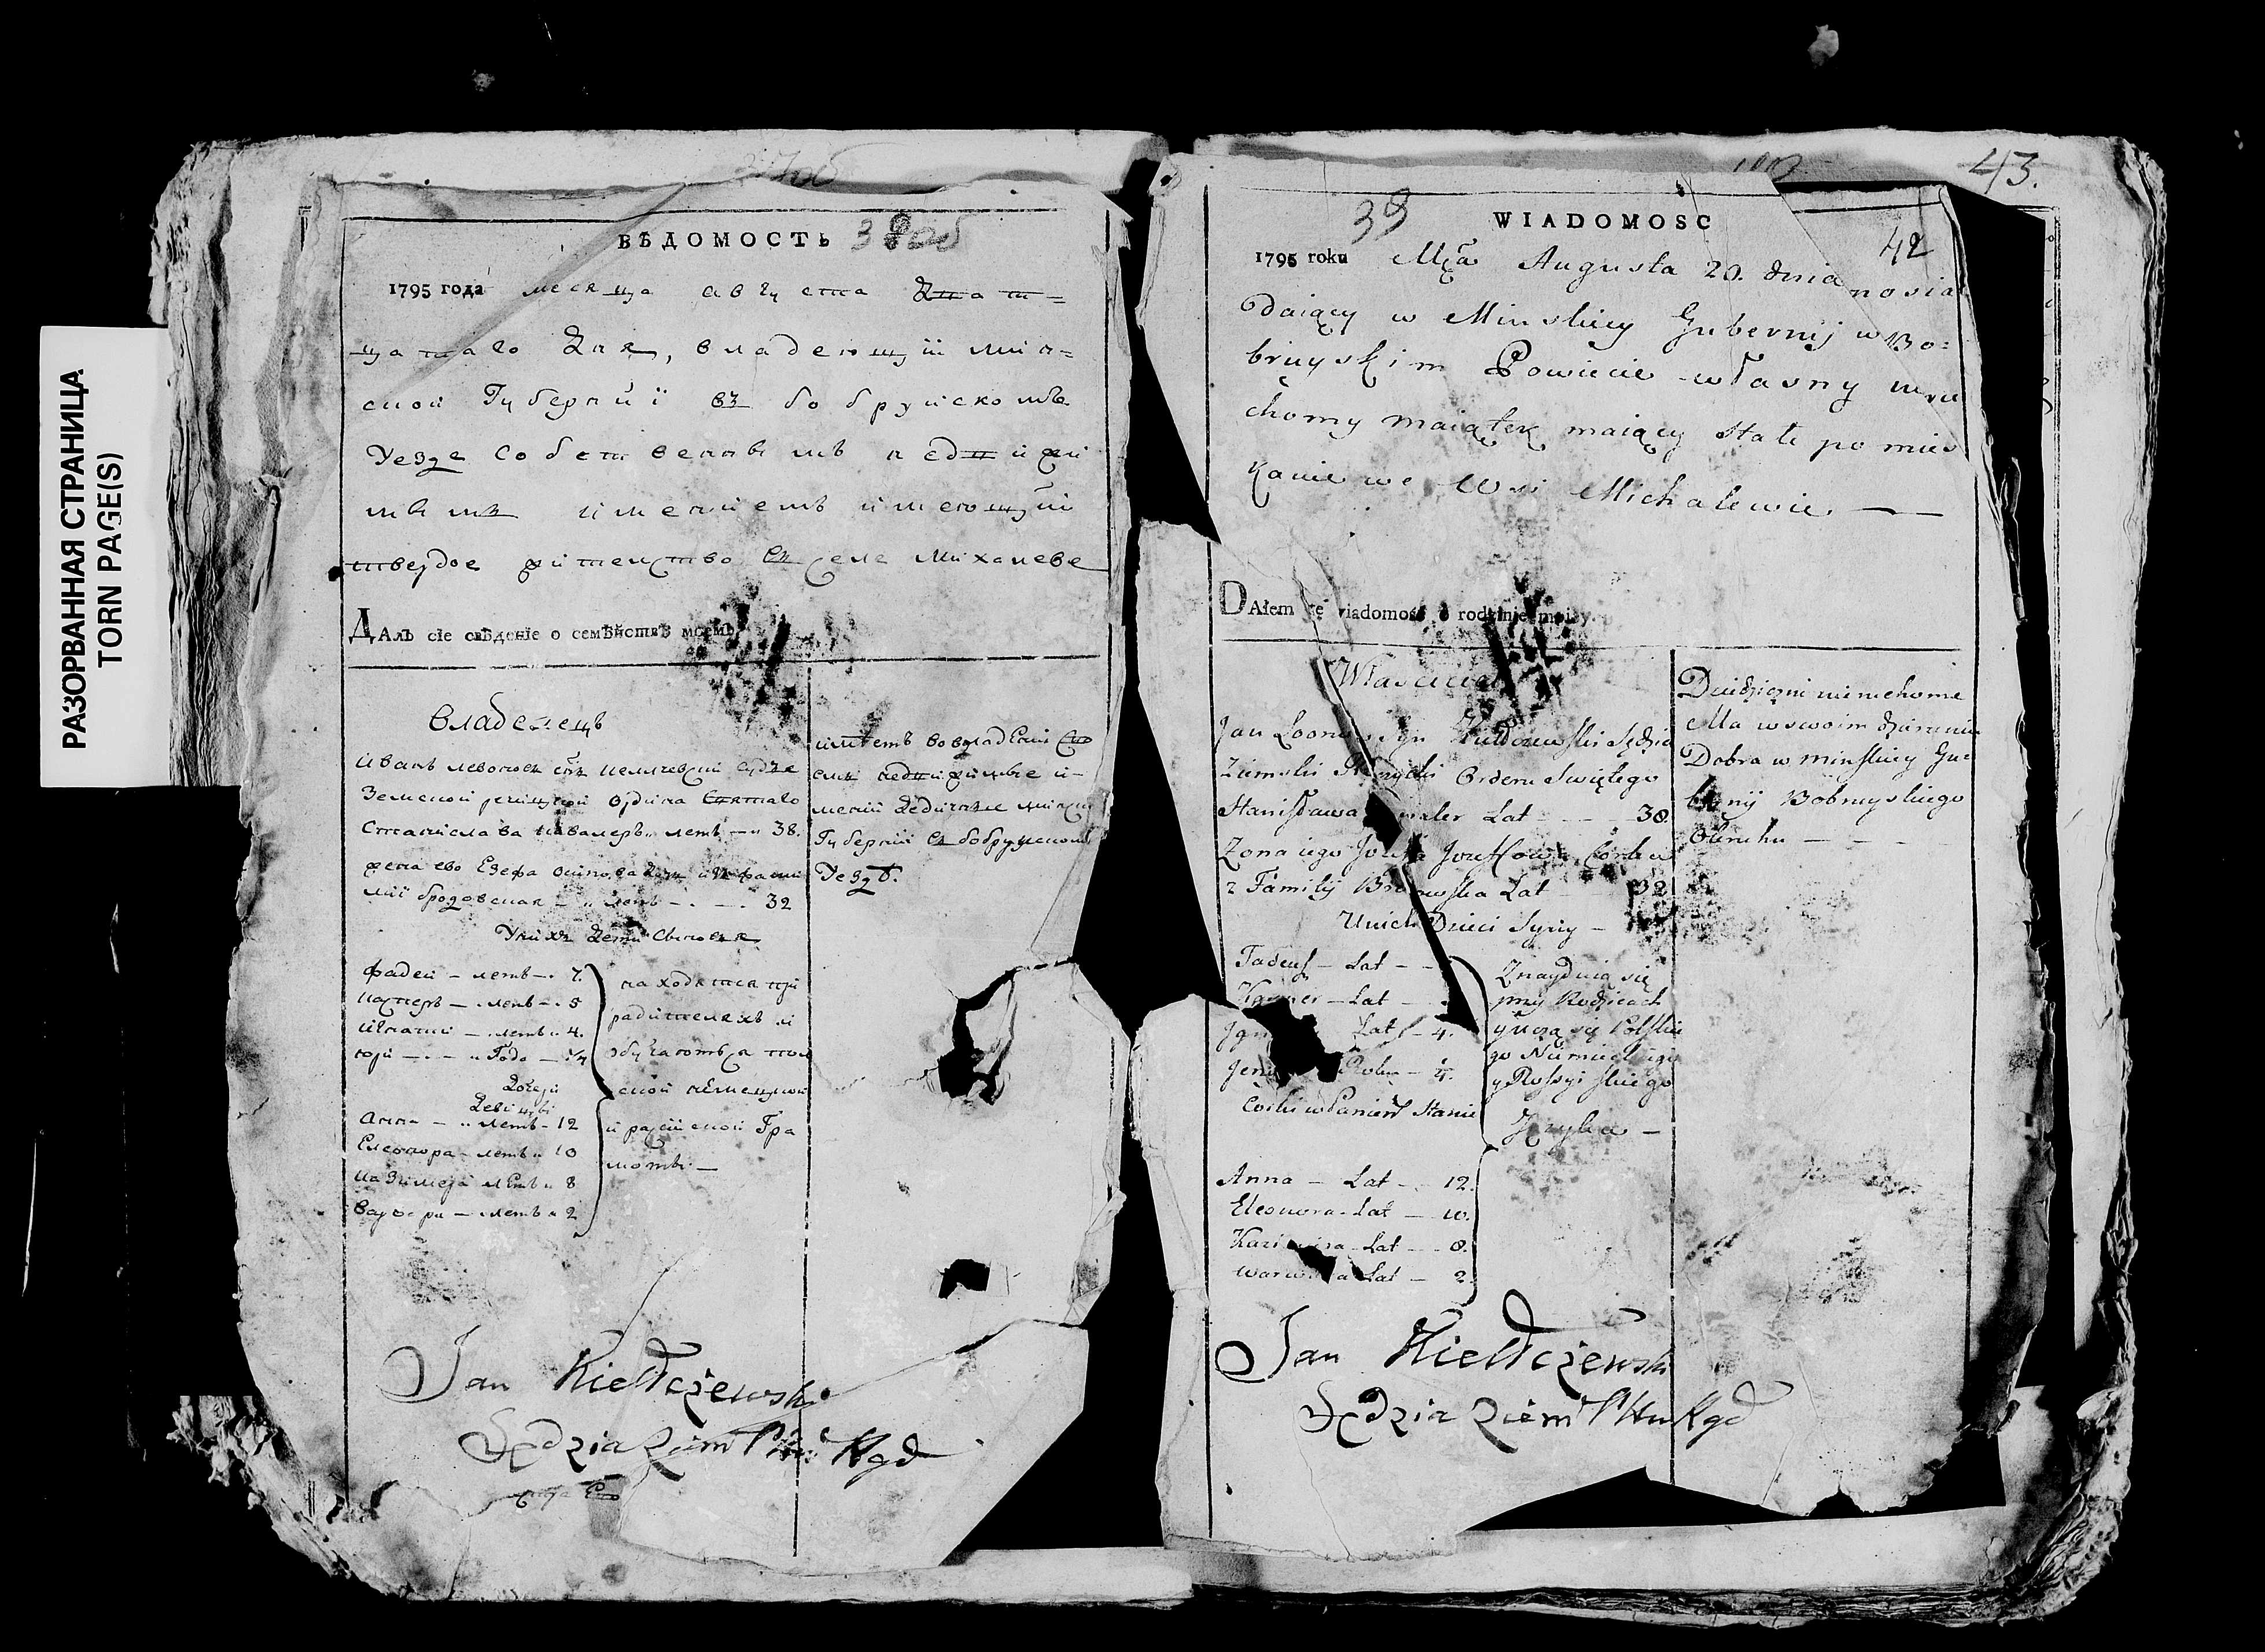 РАЗОРВАННАЯ СТРАНИЦА
TORN PAGE(S)
ВѢДОМОСТЬ 38об
1795 года месяца августа Дватъ=
цатаго Дня, владеющій мин=
ской Губерніи въ бобруйскомъ
Уезде собственнымъ недвижи
мымъ имениемъ имеющий
твердое жителство въ селе Михалеве
ДАлъ сіе свѣденіе о семѣйствѣ моемъ
владелецъ
Иванъ Левоновъ сынъ Келчевский судья
Земской речицкой Ордина Святаго
Станислава Кавалеръ летъ — 38.
жена ево Езефа Осиповна
мии бродовская — летъ — 32
У них дети Сыновья
фадей — летъ — 7.
Касперъ — летъ — 5
Игнатий — летъ 4.
юрй — Года — 1/4
Дочери
Девицы
Анна — летъ — 12
Елеонора — летъ 10
Казимера летъ 8
варвара — летъ 2
находятся при
радителяхъ и
обучаютъся пол
ской немецкой
и расийской Гра
моты —
имѣетъ во владении сво
емъ недвижимые и-
мении дедичные минской
Губернии въ бобруйскомъ
Уездѣ.
Jan Kiełczewski
Sędzia Ziem Rgo
43.
39
WIADOMOSC
42
1795 roku Mca Augusta 20. dnia posia
daiący w Minskiey Gubernij w Bo=
bruyskim Powiecie własny nieru
chomy maiątek maiący stałe pomies
kanie we Wsi Michalewie. —
DAłem tę wiadomość o rodzinie moiey
Właściciel
Jan Leonow Syn Kiełczewski Sędzia
Ziemski Rzeczycki Orderu Swiętego
Stanisława Kawaler Lat — 38.
Zona iego Jozefa Jozefowa Corka
z Familij Brodowska Lat 32
Unich Dzieci Syny —
Tadeusz — Lat —
Kasper — Lat —
Jgn Lat — 4.
Jerzy Roku — 1/4.
Corki w Panien Stanie
Anna — Lat — 12.
Eleonora — Lat — 10.
Kazimira — Lat — 8.
Warwara Lat — 2.
Znayduią się
przy Rodzicach
y uczą się Polskie
go Niemieckiego
y Rossyiskiego
Języka —
Dziedziczni nieruchome
Ma w swoim dzierzeniu
Dobra w minskiey Gu=
bernij Bobruyskiego
Okruhu —
Jan Kiełczewski
Sędzia Ziem Rgo